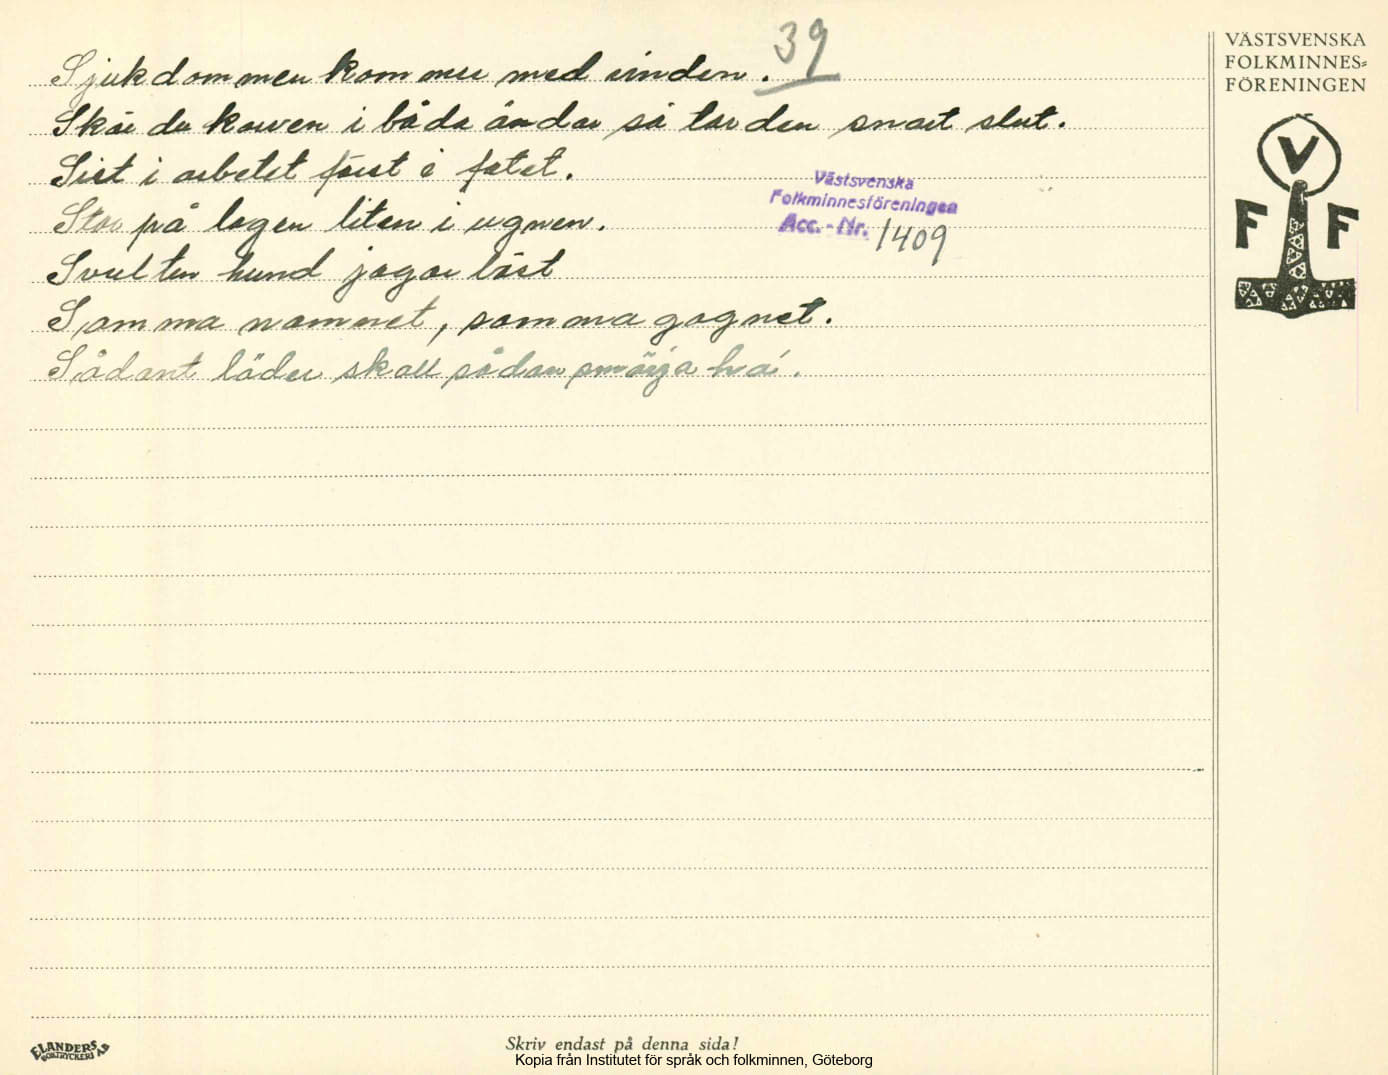 39
Sjukdommen kommer med vinden.
Skär du korven i båda ändar så tar den snart slut.
Sist i arbetet först i fatet.
Stor på logen liten i ugnen.
Svulten hund jagar bäst
Samma namnet, samma gagnet.
Sådant läder skall sådan smörja ha.
Västsvenska
Folkminnesföreningen
Acc.-Nr. 1409
VÄSTSVENSKA
FOLKMINNES-
FÖRENINGEN
V
F F
ELANDERS
BOKTRYCKERI AB
Skriv endast på denna sida!
Kopia från Institutet för språk och folkminnen, Göteborg